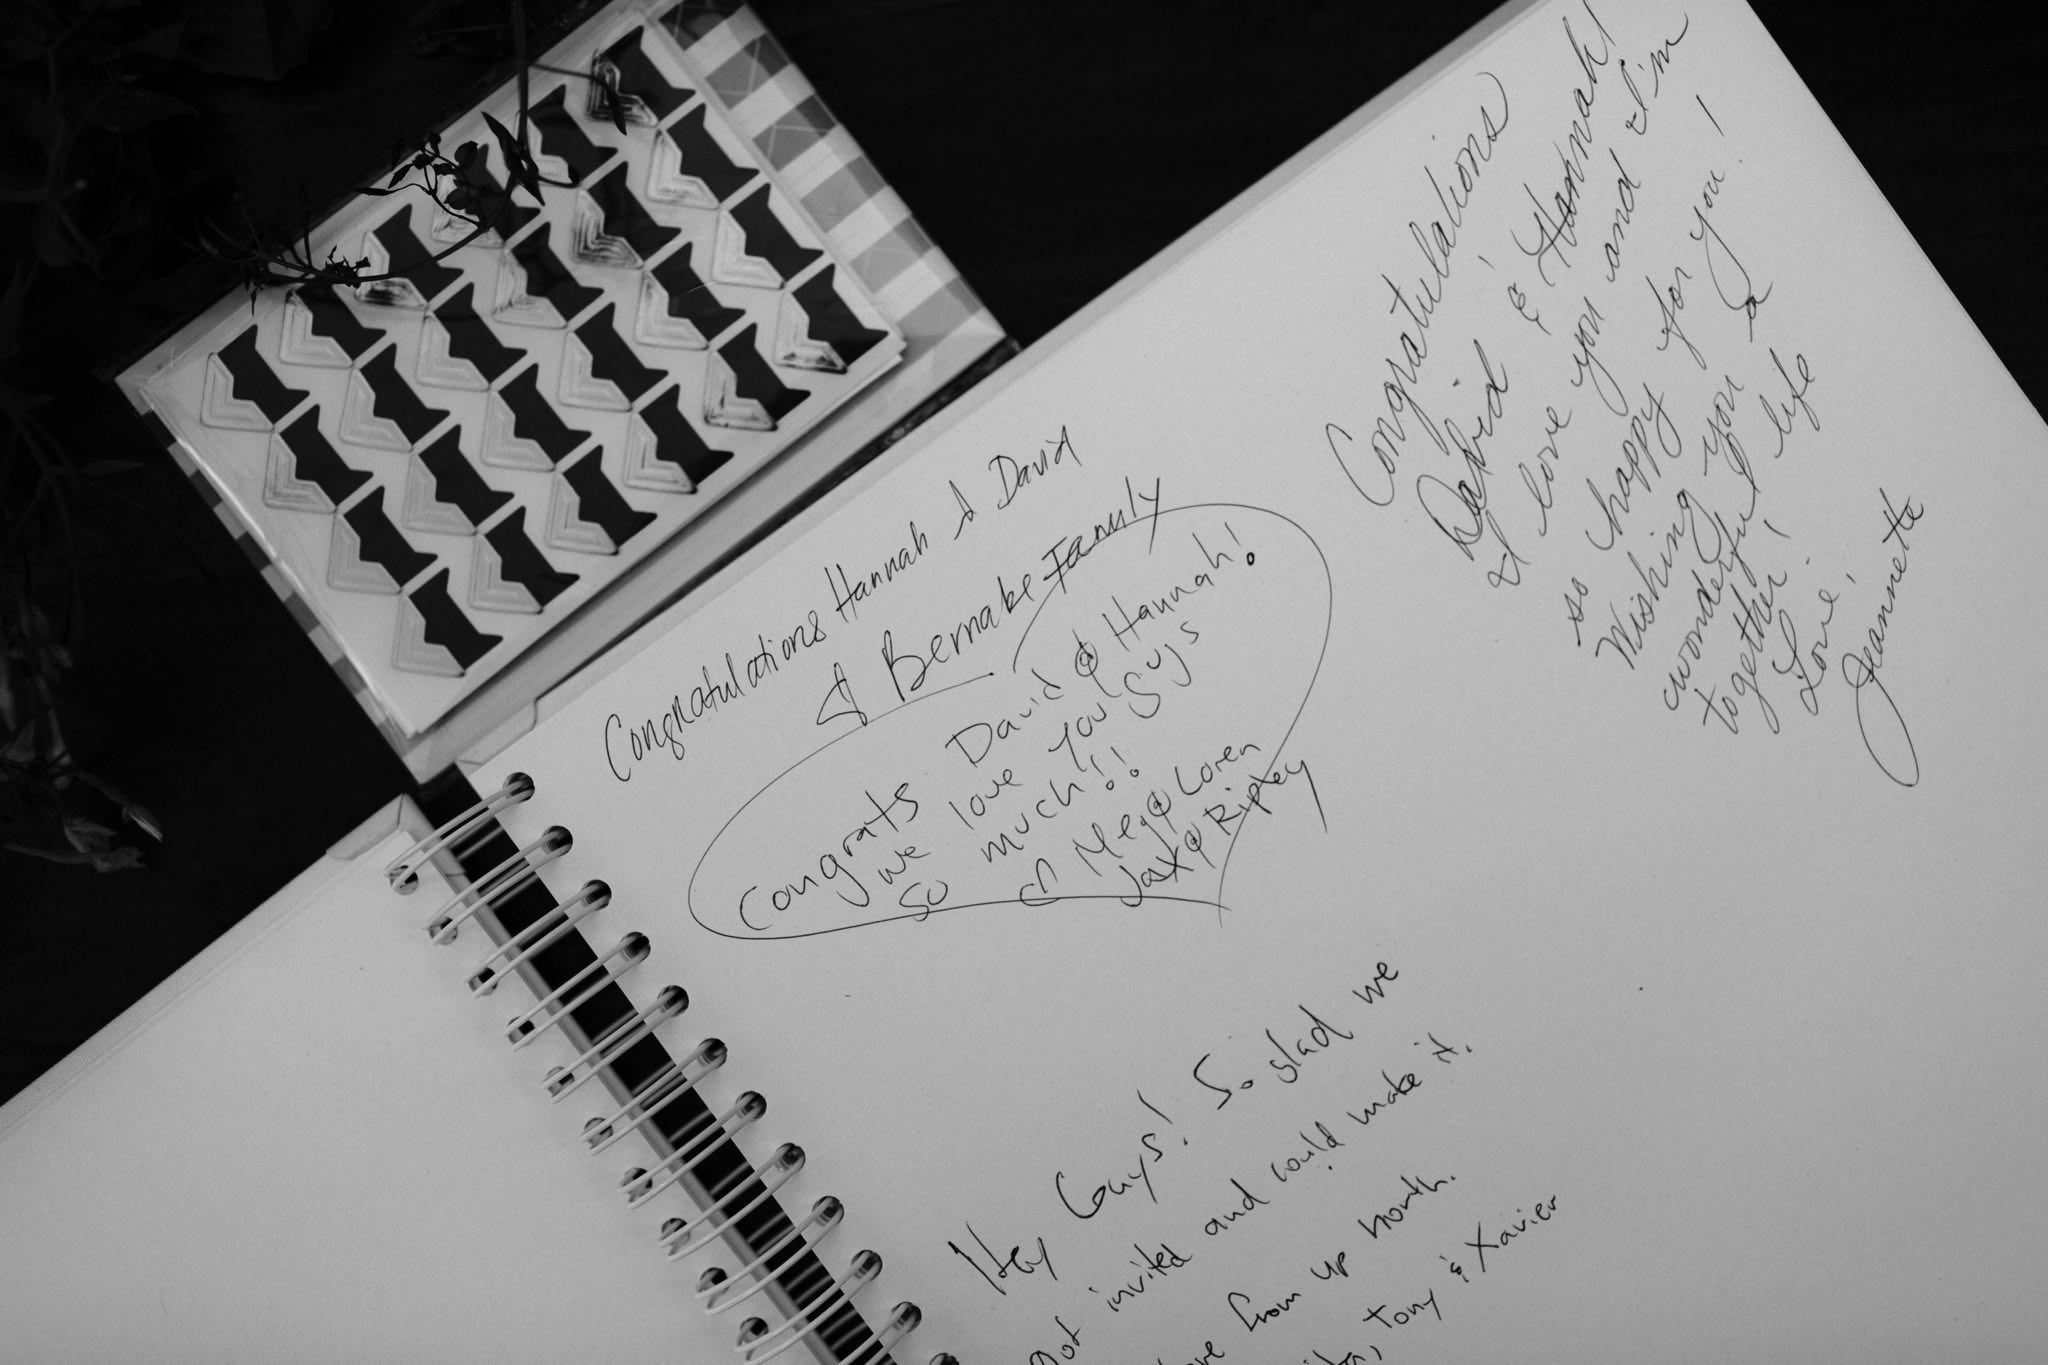 Congratulations Hannah & David
& Bernabe Family
Congrats David & Hannah!
we love you guys
so much!!
Meg & Loren
Jax & Ripley
Congratulations,
David & Hannah!
I love you and I'm
so happy for you!
Wishing you a
wonderful life
together!
Love,
Jeannette
Hey Guys! So glad we
got invited and could make it.
from up north.
Tony & Xavier